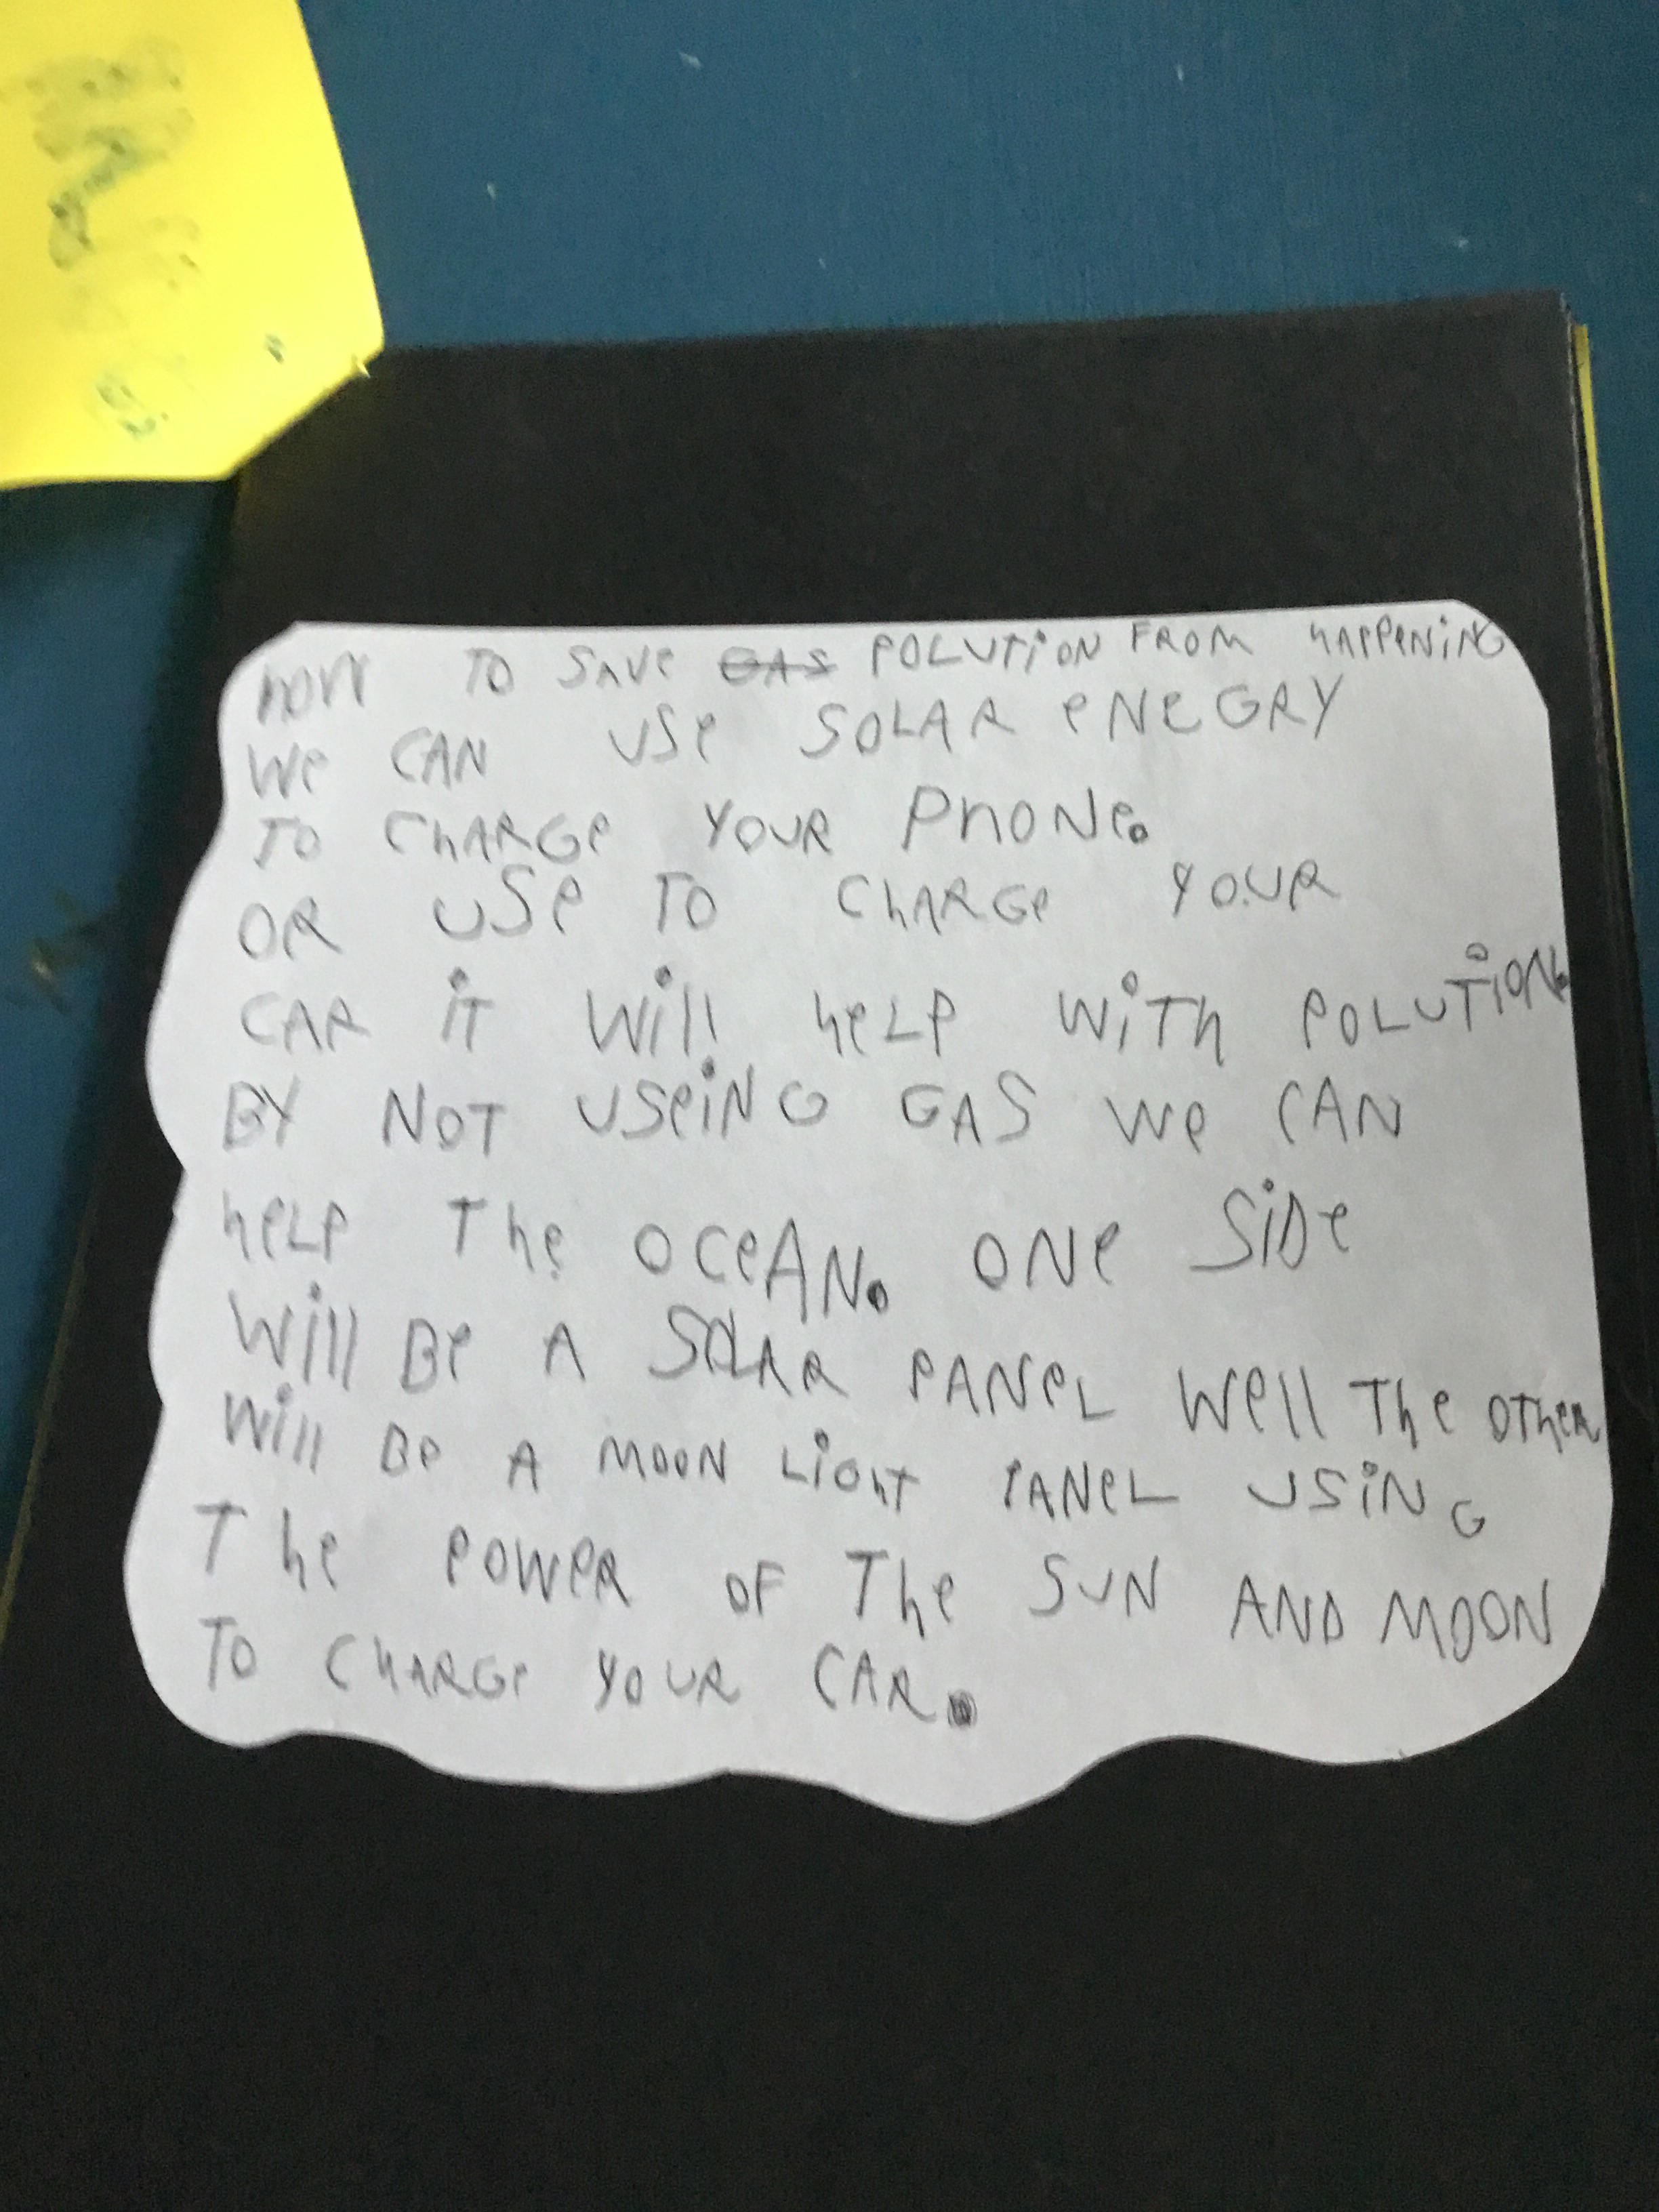 how TO SAVe GAS POLUTiON FROM hAPPeNiNG
We CAN USe SOLAR eNeGRY
TO ChARGe YOUR PhONe.
OR USe TO ChARGe YOUR
CAR iT Will heLP WiTh POLUTiON.
BY NOT USeiNG GAS We CAN
heLP The OCeAN. ONe SiDe
Will Be A SOLAR PANeL Well The OTheR
Will Be A MOON LiGhT PANeL USiNG
The POWeR OF The SUN AND MOON
TO ChARGe YOUR CAR.